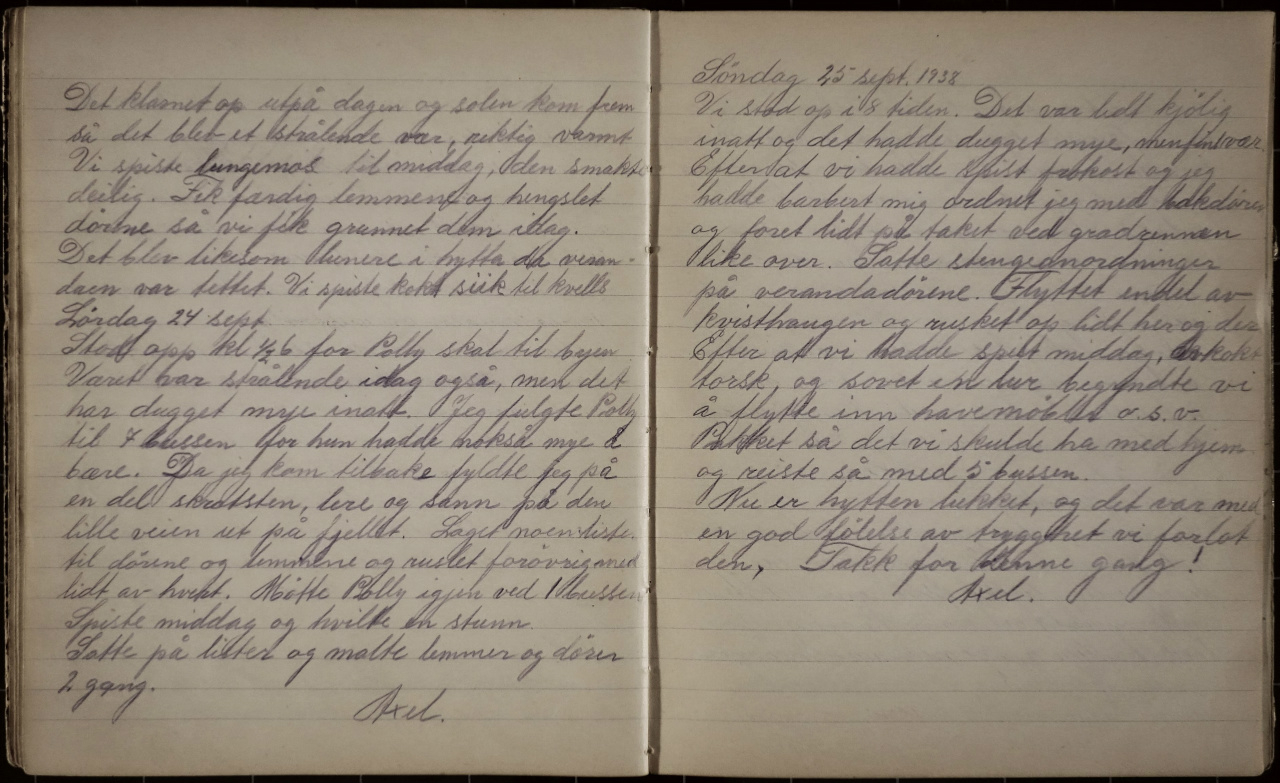 Det klarnet op utpå dagen og solen kom frem
så det blev et strålende vær, riktig varmt
Vi spiste lungemos til middag, den smakte
deilig. Fik færdig lemmene og hengslet
dörene så vi fik grunnet dem idag.
Det blev likesom lunere i hytta da veran-
daen var tettet. Vi spiste kokt siik til kvells
Lördag 24 sept.
Stod opp kl ½6 for Polly skal til byen
Været var strålende idag også, men det
har dugget mye inatt. Jeg fulgte Polly
til 7 bussen for hun hadde nokså mye å
bære. Da jeg kom tilbake fyldte jeg på
en del skrotsten, lere og sann på den
lille veien ut på fjellet. Laget noen liste.
til dörene og lemmene og ruslet forövrig med
lidt av hvert. Mötte Polly igjen ved 1 bussen
Spiste middag og hvilte en stunn.
Satte på lister og malte lemmer og dörer
2 gang.
Axel.
Söndag 25 sept. 1938
Vi stod op i 8 tiden. Det var lidt kjölig
inatt og det hadde dugget mye, men fint vær
Efter at vi hadde spist frokost og jeg
hadde barbert mig ordnet jeg med bakdören
og foret lidt på taket ved gradrennen
like over. Satte stengeanordninger
på verandadörene. Flyttet endel av
kvisthaugen og rusket op lidt her og der
Efter at vi hadde spist middag, kokt
torsk, og sovet en lur begyndte vi
å flytte inn havemöbler o.s.v.
Pakket så det vi skulde ha med hjem
og reiste så med 5 bussen.
Nu er hytten lukket, og det var med
en god fölelse av trygghet vi forlot
den, Takk for denne gang!
Axel.